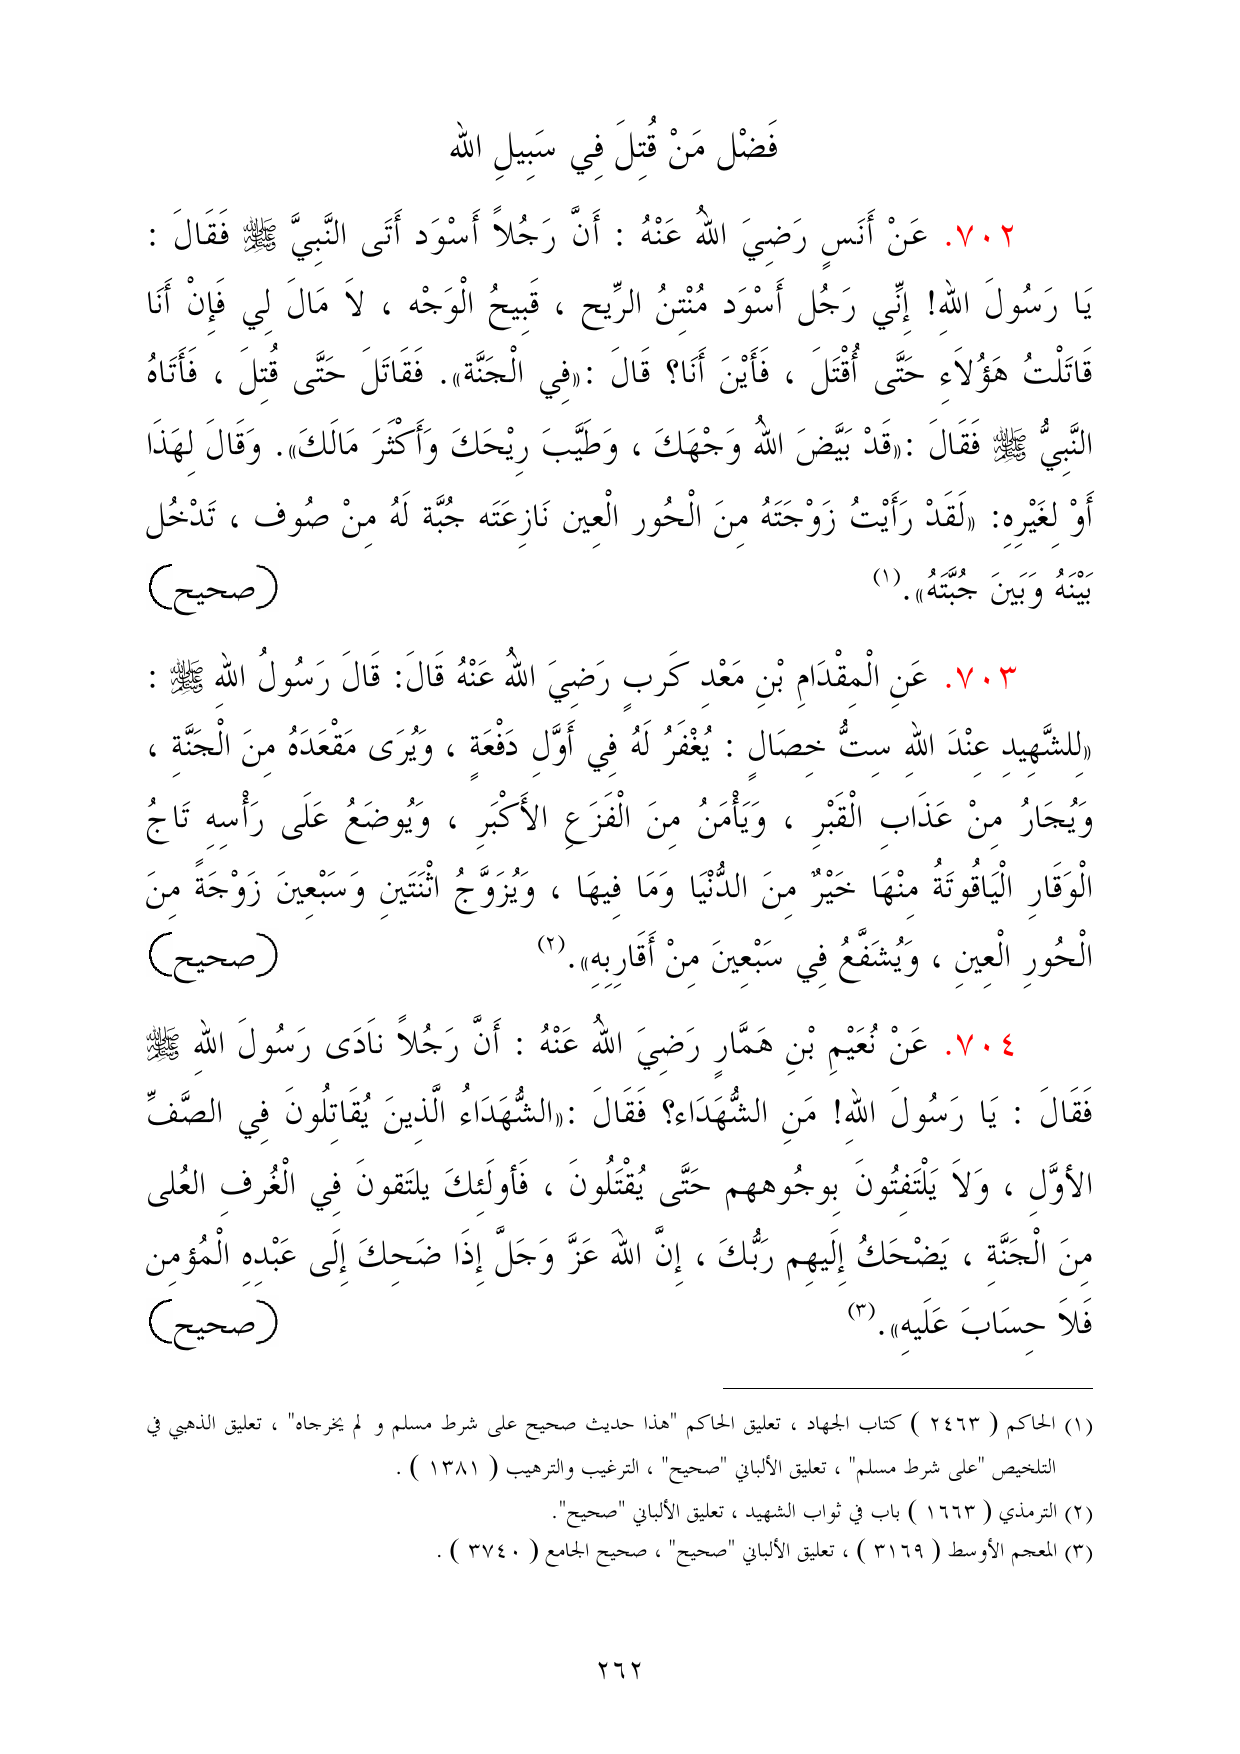 فَضْل مَنْ قُتِلَ فِي سَبِيلِ الله
٧٠٢. عَنْ أَنَسٍ رَضِيَ اللهُ عَنْهُ : أَنَّ رَجُلاً أَسْوَد أَتَى النَّبِيَّ ﷺ فَقَالَ :
يَا رَسُولَ اللهِ! إِنِّي رَجُل أَسْوَد مُنْتِنُ الرِّيح ، قَبِيحُ الْوَجْه ، لاَ مَالَ لِي فَإِنْ أَنَا
قَاتَلْتُ هَؤُلاَءِ حَتَّى أُقْتَلَ ، فَأَيْنَ أَنَا؟ قَالَ :«فِي الْجَنَّة». فَقَاتَلَ حَتَّى قُتِلَ ، فَأَتَاهُ
النَّبِيُّ ﷺ فَقَالَ :«قَدْ بَيَّضَ اللهُ وَجْهَكَ ، وَطَيَّبَ رِيْحَكَ وَأَكْثَرَ مَالَكَ». وَقَالَ لِهَذَا
أَوْ لِغَيْرِهِ: «لَقَدْ رَأَيْتُ زَوْجَتَهُ مِنَ الْحُور الْعِين نَازِعَتَه جُبَّة لَهُ مِنْ صُوف ، تَدْخُل
بَيْنَهُ وَبَينَ جُبَّتَهُ».(١) (صحيح)
٧٠٣. عَنِ الْمِقْدَامِ بْنِ مَعْدِ كَربٍ رَضِيَ اللهُ عَنْهُ قَالَ: قَالَ رَسُولُ اللهِ ﷺ :
«لِلشَّهِيدِ عِنْدَ اللهِ سِتُّ خِصَالٍ : يُغْفَرُ لَهُ فِي أَوَّلِ دَفْعَةٍ ، وَيُرَى مَقْعَدَهُ مِنَ الْجَنَّةِ ،
وَيُجَارُ مِنْ عَذَابِ الْقَبْرِ ، وَيَأْمَنُ مِنَ الْفَزَعِ الأَكْبَرِ ، وَيُوضَعُ عَلَى رَأْسِهِ تَاجُ
الْوَقَارِ الْيَاقُوتَةُ مِنْهَا خَيْرٌ مِنَ الدُّنْيَا وَمَا فِيهَا ، وَيُزَوَّجُ اثْنَتَينِ وَسَبْعِينَ زَوْجَةً مِنَ
الْحُورِ الْعِينِ ، وَيُشَفَّعُ فِي سَبْعِينَ مِنْ أَقَارِبِهِ».(٢) (صحيح)
٧٠٤. عَنْ نُعَيْمِ بْنِ هَمَّارٍ رَضِيَ اللهُ عَنْهُ : أَنَّ رَجُلاً نَادَى رَسُولَ اللهِ ﷺ
فَقَالَ : يَا رَسُولَ اللهِ! مَنِ الشُّهَدَاء؟ فَقَالَ :«الشُّهَدَاءُ الَّذِينَ يُقَاتِلُونَ فِي الصَّفِّ
الأوَّلِ ، وَلاَ يَلْتَفِتُونَ بِوجُوههم حَتَّى يُقْتَلُونَ ، فَأولَئِكَ يلتَقونَ فِي الْغُرفِ العُلى
مِنَ الْجَنَّةِ ، يَضْحَكُ إِلَيهِم رَبُّكَ ، إِنَّ اللهَ عَزَّ وَجَلَّ إِذَا ضَحِكَ إِلَى عَبْدِهِ الْمُؤمِن
فَلاَ حِسَابَ عَلَيهِ».(٣) (صحيح)
(١) الحاكم ( ٢٤٦٣ ) كتاب الجهاد ، تعليق الحاكم "هذا حديث صحيح على شرط مسلم و لم يخرجاه" ، تعليق الذهبي في
التلخيص "على شرط مسلم" ، تعليق الألباني "صحيح" ، الترغيب والترهيب ( ١٣٨١ ) .
(٢) الترمذي ( ١٦٦٣ ) باب في ثواب الشهيد ، تعليق الألباني "صحيح".
(٣) المعجم الأوسط ( ٣١٦٩ ) ، تعليق الألباني "صحيح" ، صحيح الجامع ( ٣٧٤٠ ) .
٢٦٢